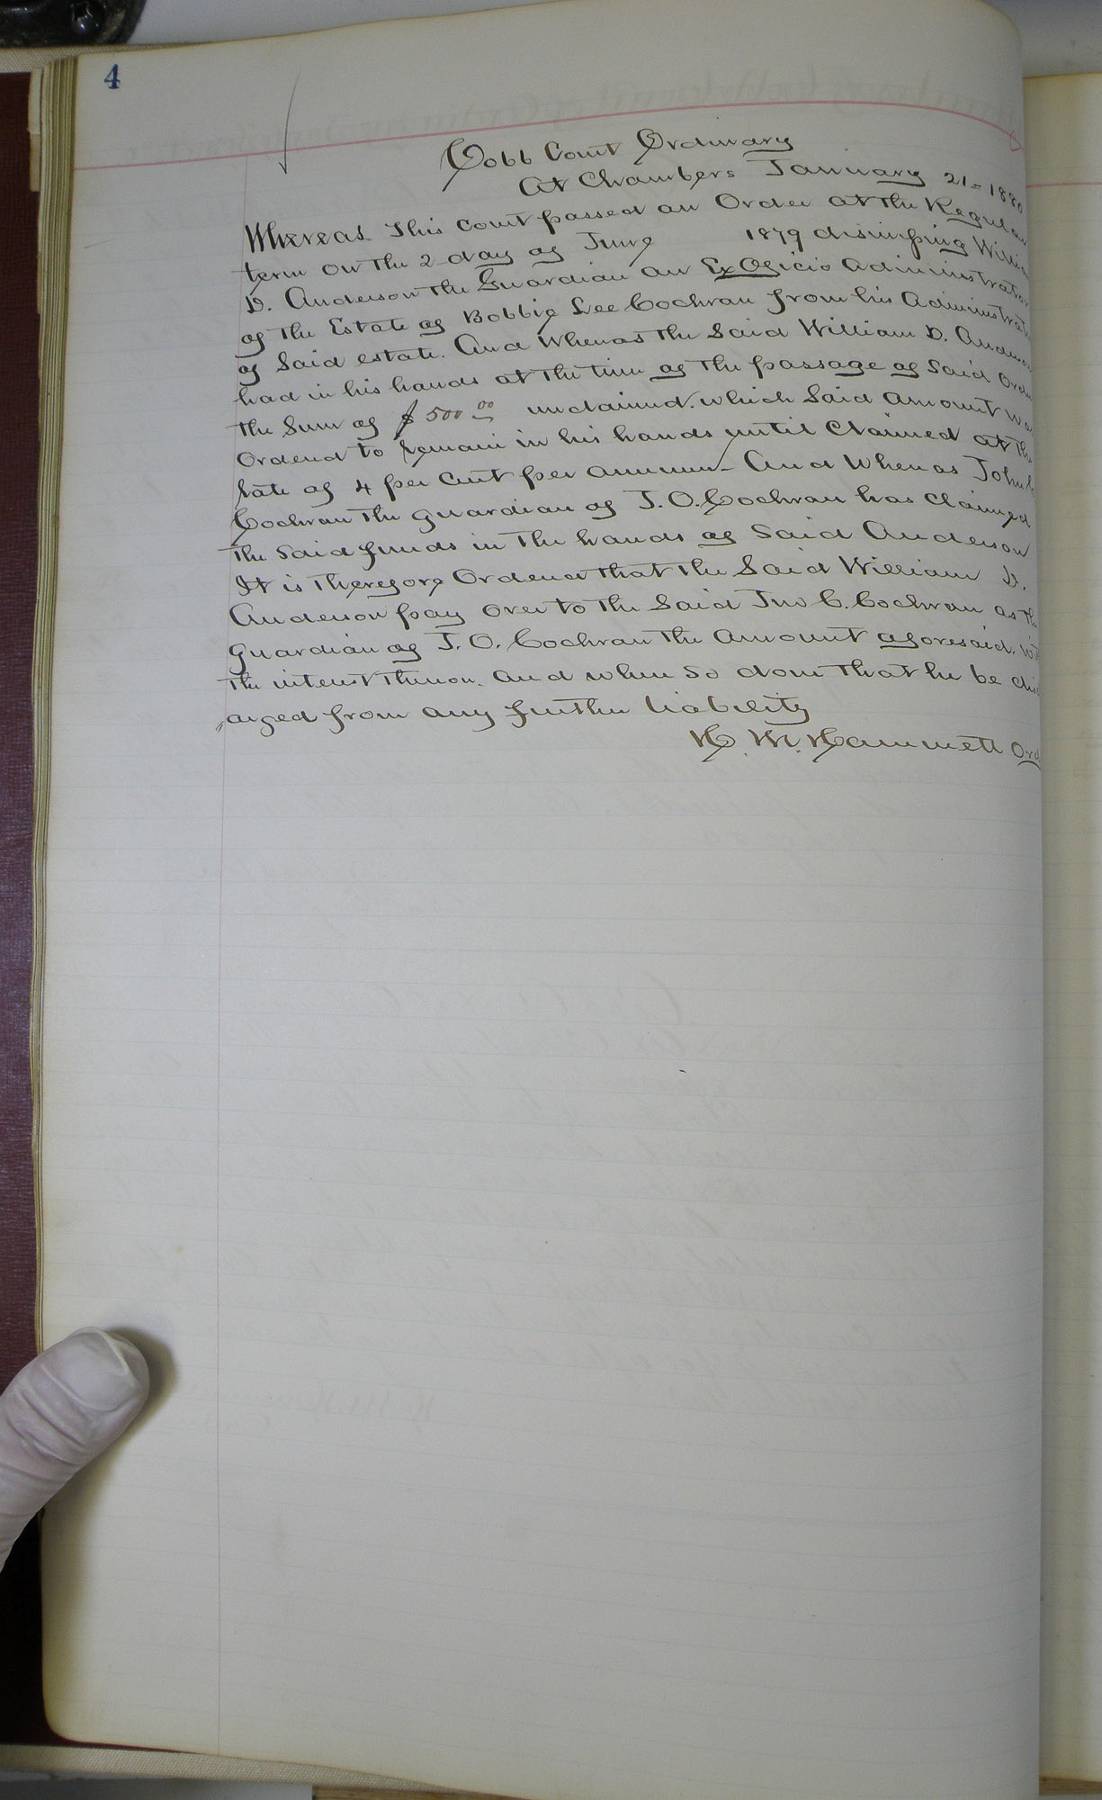 4
Cobb Court Ordinary
At Chambers January 21= 1880
Whereas This Court passed an Order at the Regular
term on the 2 day of June 1879 dismissing William
D. Anderson the Guardian an Ex Oficio Administrator
of the Estate of Bobbie Lee Cochran from his Administrati
of Said estate. And Whereas the Said William D. Anderson
had in his hands at the time of the passage of Said Order
the Sum of $500.00 unclaimed. which Said Amount was
Ordered to remain in his hands until Claimed at the
rate of 4 per Cent per annum- And Whereas John C.
Cochran the guardian of J. O. Cochran has Claimed
the Said funds in the hands of Said Anderson
It is Therefore Ordered that the Said William D.
Anderson pay over to the Said Jno C. Cochran as the
guardian of J. O. Cochran the Amount aforesaid. with
the interest thereon. and when So done that he be disc
"arged from any further liability
H. M. Hammett Ord